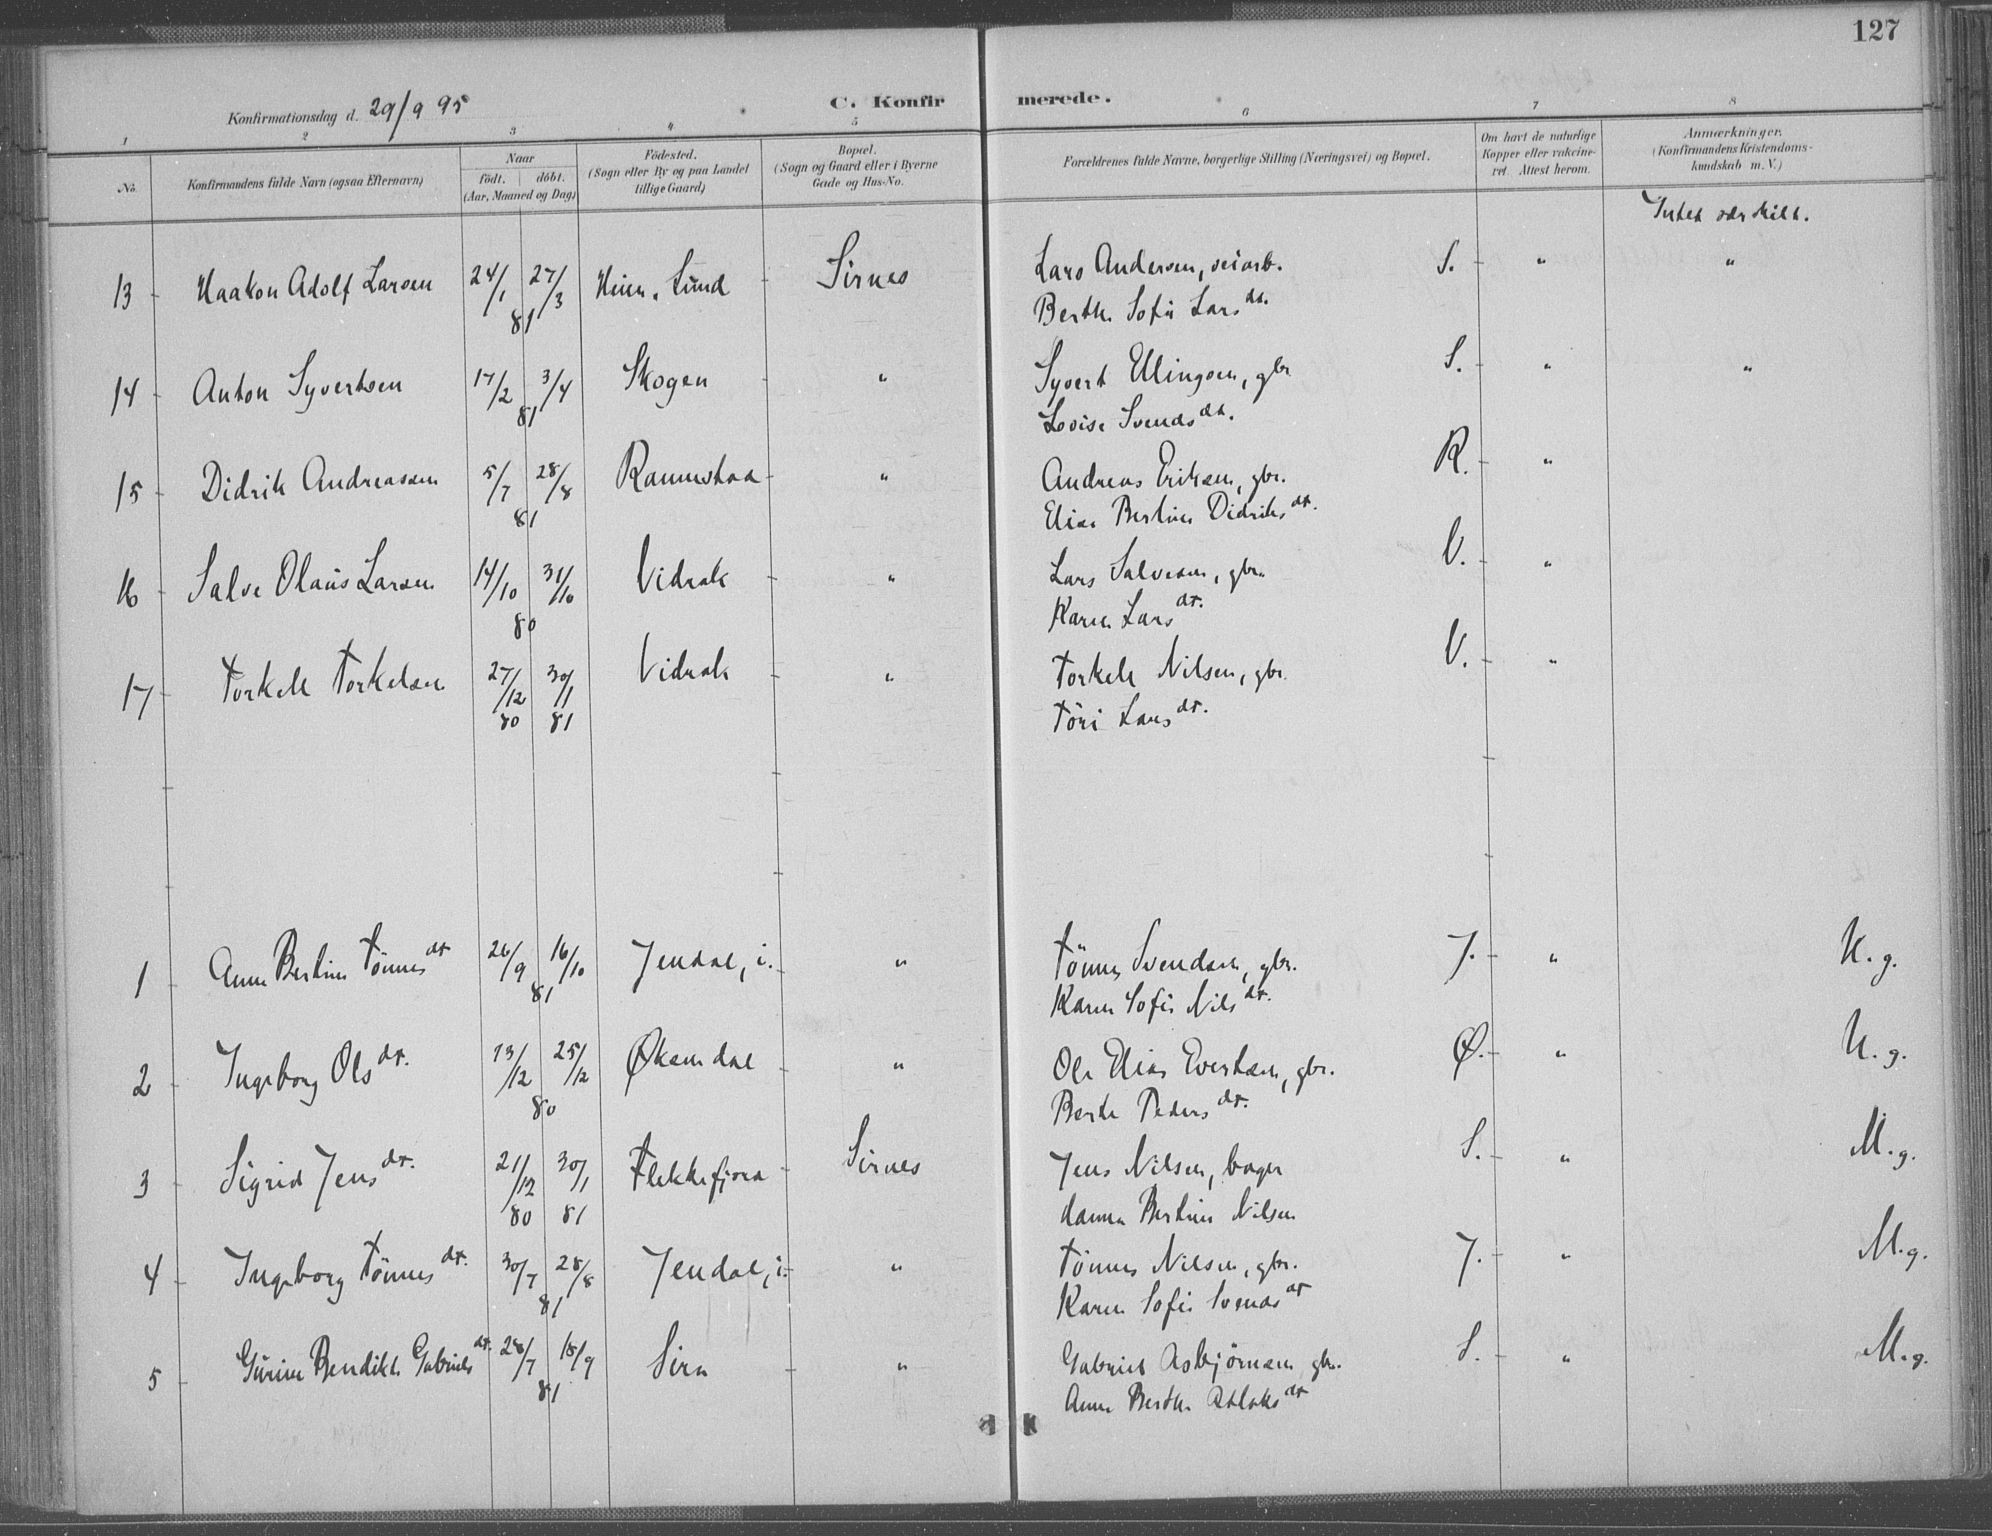 127
Konfirmationsdag d. 29/9 95
C. Konfirmerede.
1 2 3 4 5 6 7 8
No.
Konfirmandens fulde Navn (ogsaa Efternavn)
Naar
født. døbt.
(Aar, Maaned og Dag)
Fødested.
(Sogn eller By og paa Landet
tillige Gaard)
Bopæl.
(Sogn og Gaard eller i Byerne
Gade og Hus-No.
Forældrenes fulde Navne, borgerlige Stilling (Næringsvei) og Bopæl.
Om havt de naturlige
Kopper eller vakcine-
ret. Attest herom.
Anmærkninger.
(Konfirmandens Kristendoms-
kundskab m. V.)
Intet særskilt.
13 Haakon Adolf Larsen 24/1 27/3 81 Lund Sirnes Lars Andersen, veiarb. S. " "
Berthe Sofie Larsdt.
14 Anton Syvertsen 17/2 3/4 81 Skogen " Syvert Ellingsen, gbr S. " "
Lovise Svendsdt.
15 Didrik Andreassen 5/7 28/8 81 " Andreas Eriksen, gbr. R. "
Elise Bertine Didriksdt.
16 Salve Olaus Larsen 14/10 31/10 80 Vidrak " Lars Salvesen, gbr. V. "
Karen Larsdt.
17 Torkell Torkelsen 27/12 80 30/1 81 Vidrak " Torkell Nilsen, gbr. V. "
Tori Larsdt.
1 Anne Bertine Tønnesdt 26/9 16/10 81 Jendal, i. " Tønnes Svendsen, gbr. J. " M. g.
Karen Sofie Nilsdt.
2 Ingeborg Olsdt. 13/12 25/12 80 Øksendal " Ole Elias Evertsen, gbr. Ø. " M. g.
Berte Pedersdt.
3 Sigrid Jensdt. 21/12 80 30/1 81 Flekkefjord Sirnes Jens Nilsen, bager S. " M. g.
Hanna Bertine Nilsen
4 Ingeborg Tønnesdt. 30/7 28/8 81 Jendal, i. " Tønnes Nilsen, gbr. J. " M. g.
Karen Sofie Svendsdt
5 Gurine Bendikte Gabrielsdt. 28/7 18/9 81 Sira " Gabriel Asbjørnsen gbr. S. " M. g.
Anne Berthe Atlaksdt